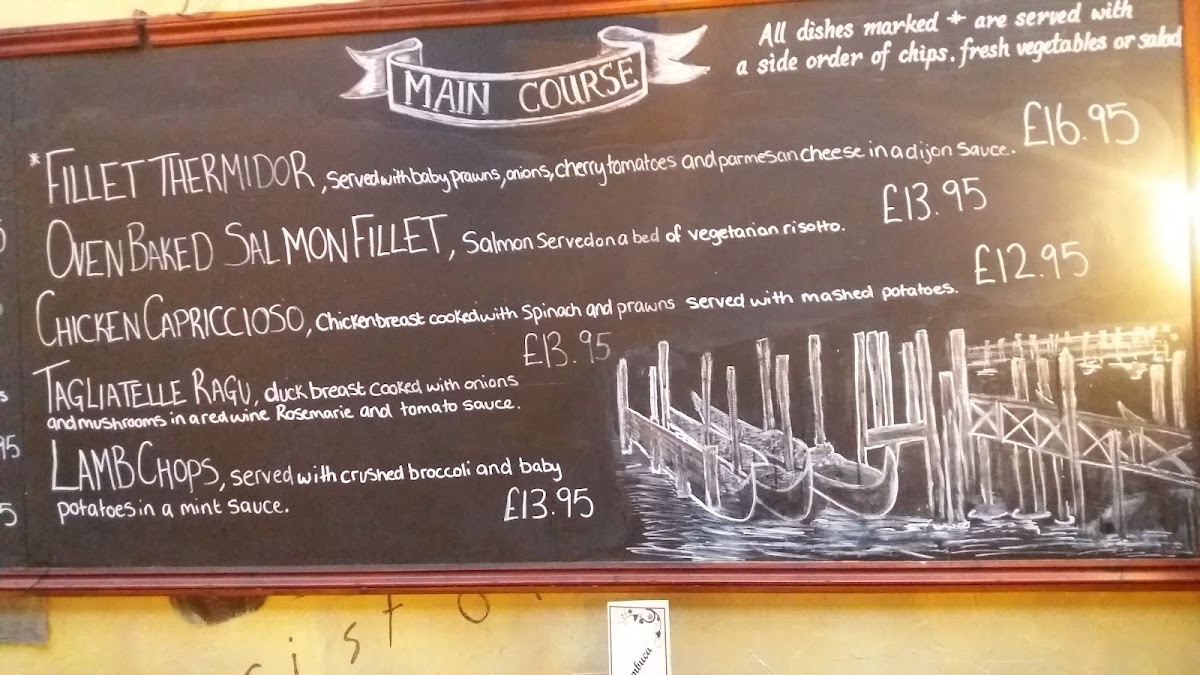 MAIN COURSE
All dishes marked * are served with
a side order of chips. fresh vegetables or salad
*FILLET THERMIDOR, served with baby prawns, onions, cherry tomatoes and parmesan cheese in a dijon sauce. £16.95
OVEN BAKED SALMON FILLET, Salmon Served on a bed of vegetarian risotto. £13.95
CHICKEN CAPRICCIOSO, Chicken breast cooked with Spinach and prawns served with mashed potatoes. £12.95
£13.95
TAGLIATELLE RAGU, duck breast cooked with onions
and mushrooms in a red wine Rosemarie and tomato sauce.
LAMB CHOPS, served with crushed broccoli and baby
potatoes in a mint sauce. £13.95
95
5